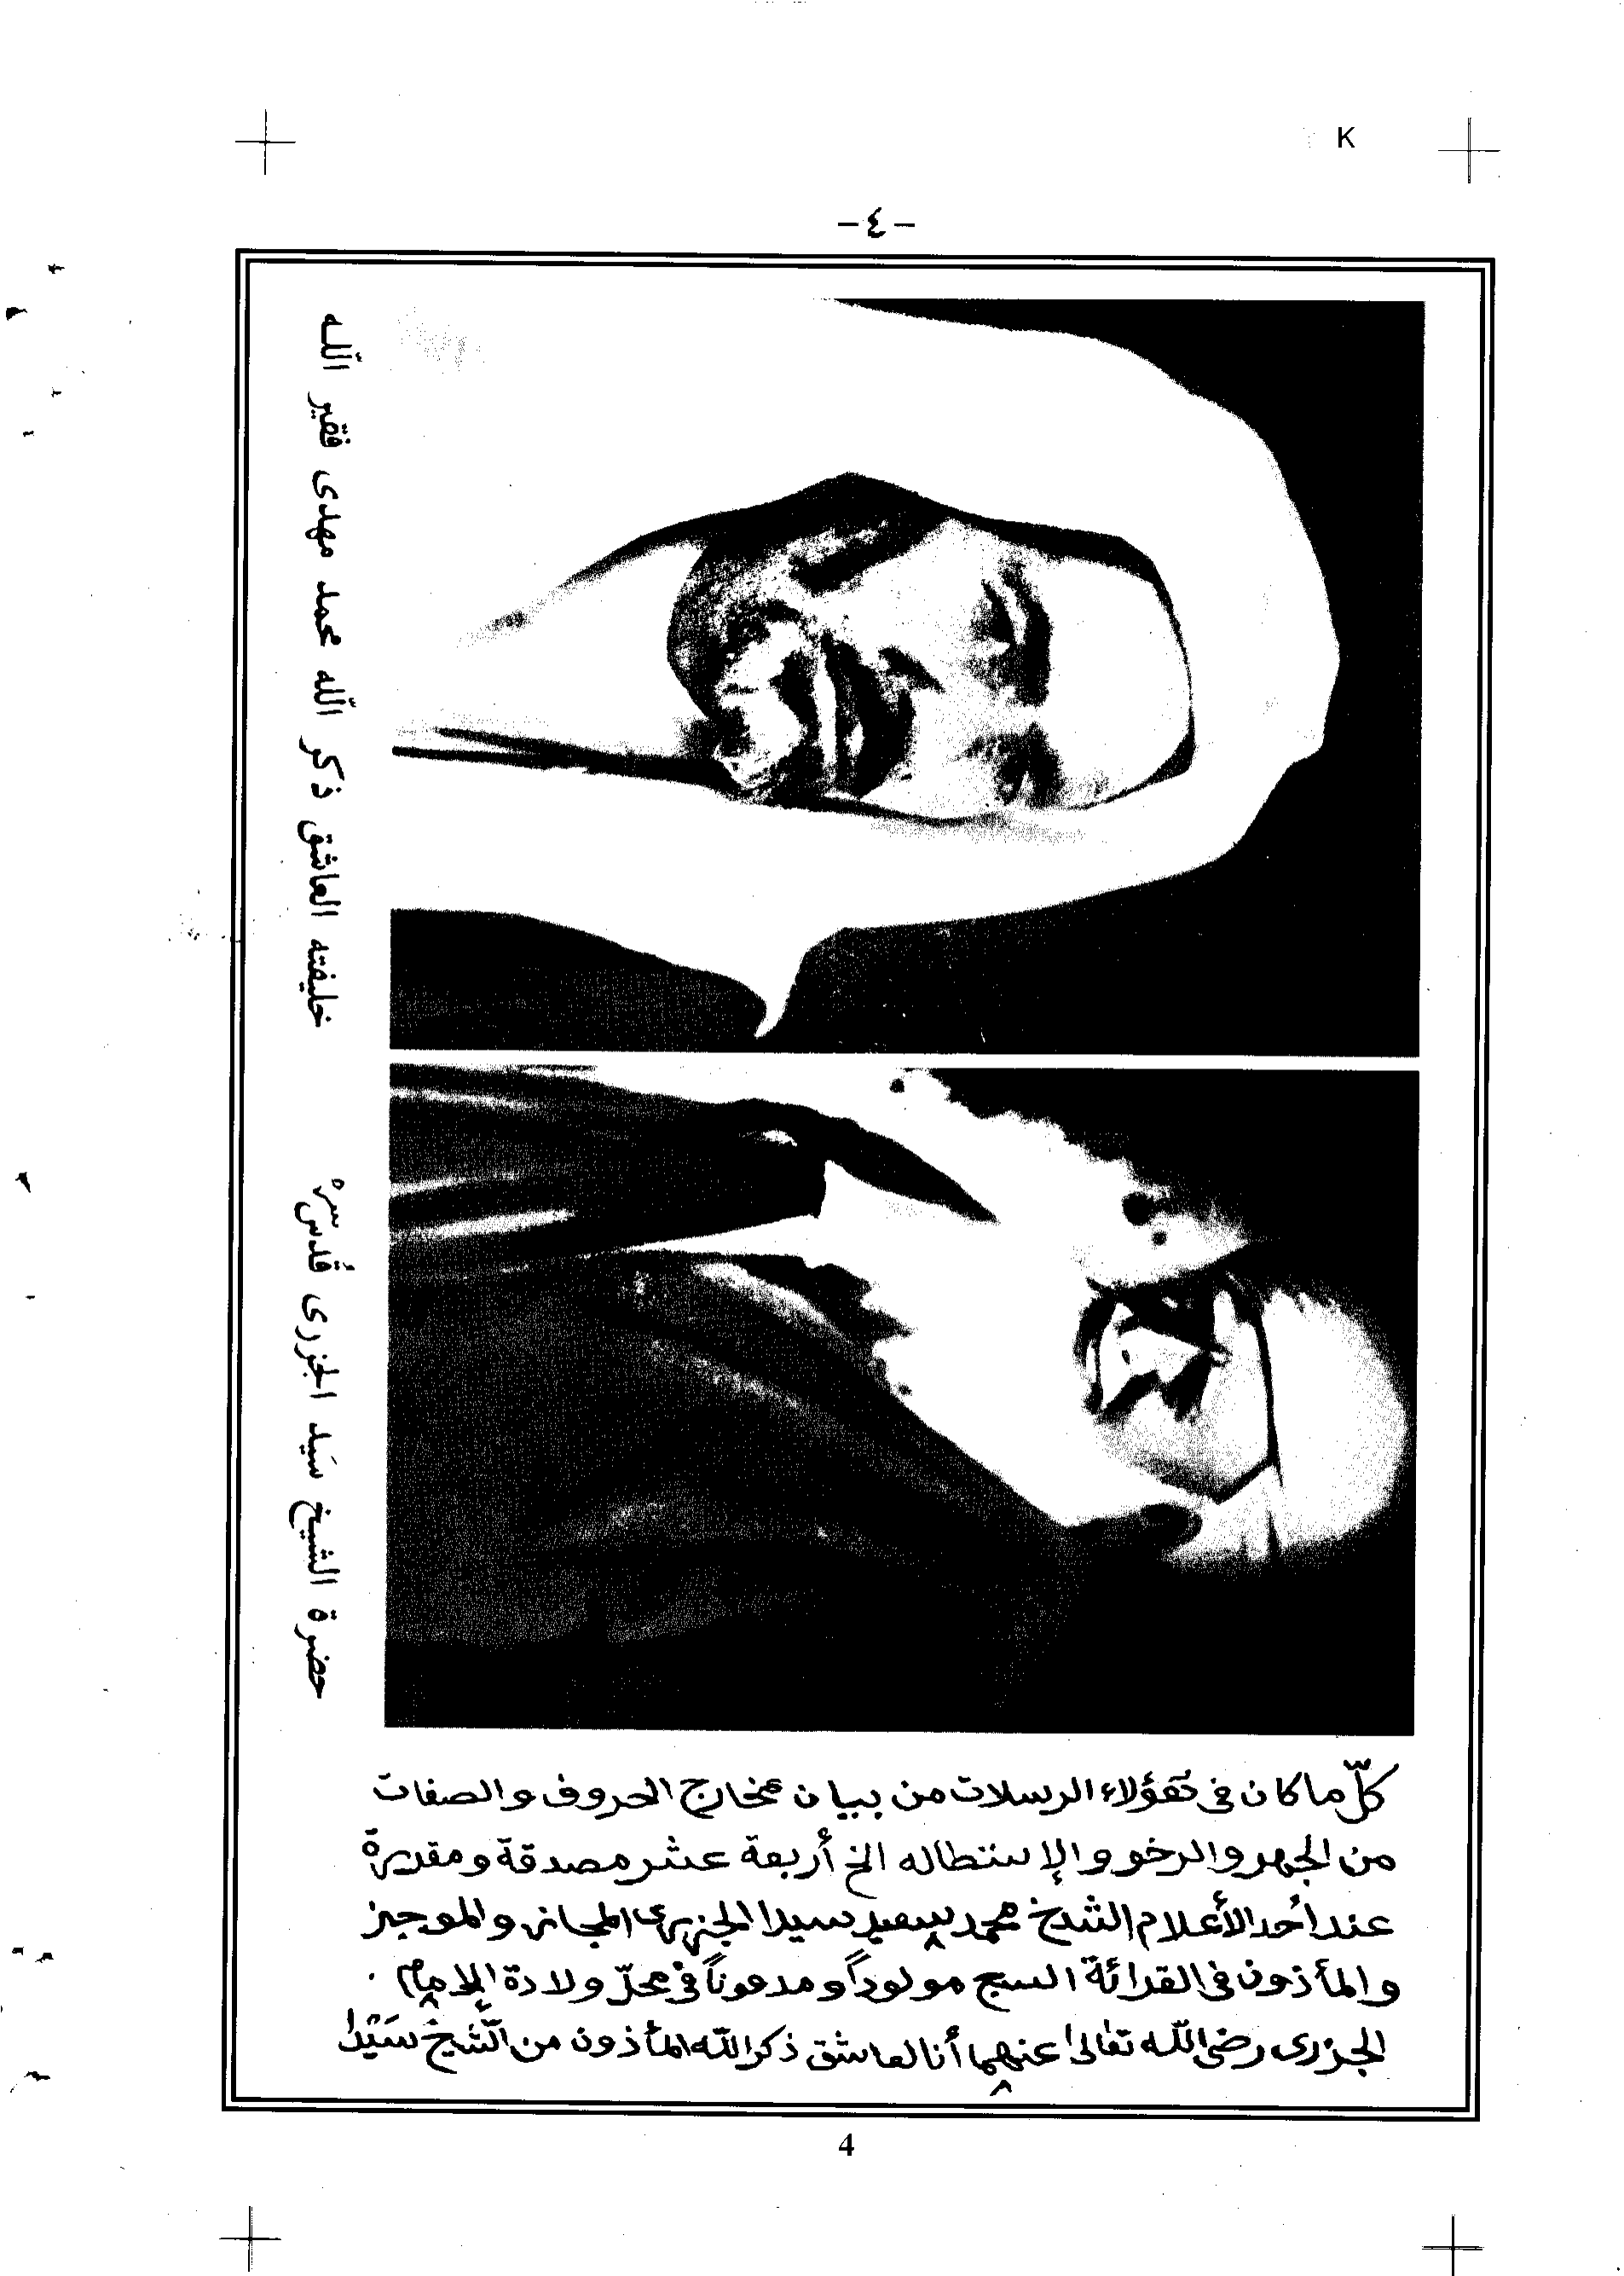 K
-٤-
خليفته العاشق ذكر الله محمد مهدى فقير الله
حضرة الشيخ سَيد الجزرى قُدس سرهْ
كلّ ما كان فى هٰؤلاء الرسلات من بيان مخارج الحروف والصفات
من الجهر والرخو والإستطاله الخ أربعة عشر مصدقة ومقررة
عند أحد الأعلام الشيخ محمد سعيد سيدا الجزرى المجاز والموجيز
والمأذون فى القرائة السبع مولوداً ومدفوناً فى محلّ ولادة الإمام .
الجزرى رضى الله تعالى عنهما أنا العاشق ذكر الله المأذون من الشّيخ سَيْدا
4